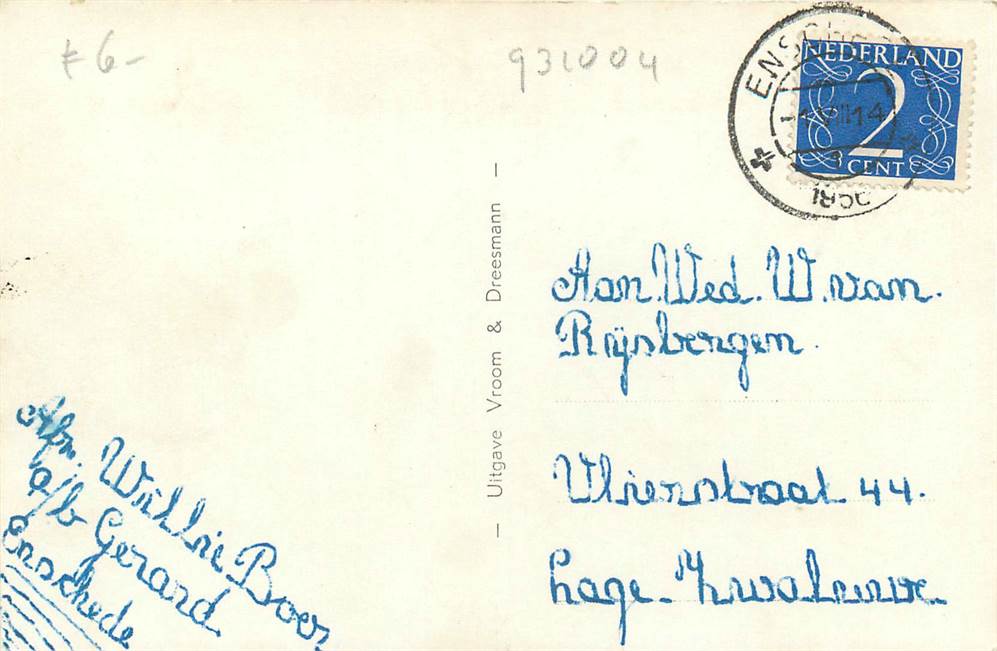 f 6-
931004
ENSCHEDE
NEDERLAND
2
CENT
- Uitgave Vroom & Dreesmann -
Aan Wed. W. van.
Rijsbergen.
Vlierstraat 44.
Lage-Zwaluwe
Afz. Willie Boer
a/b Gerard
Enschede